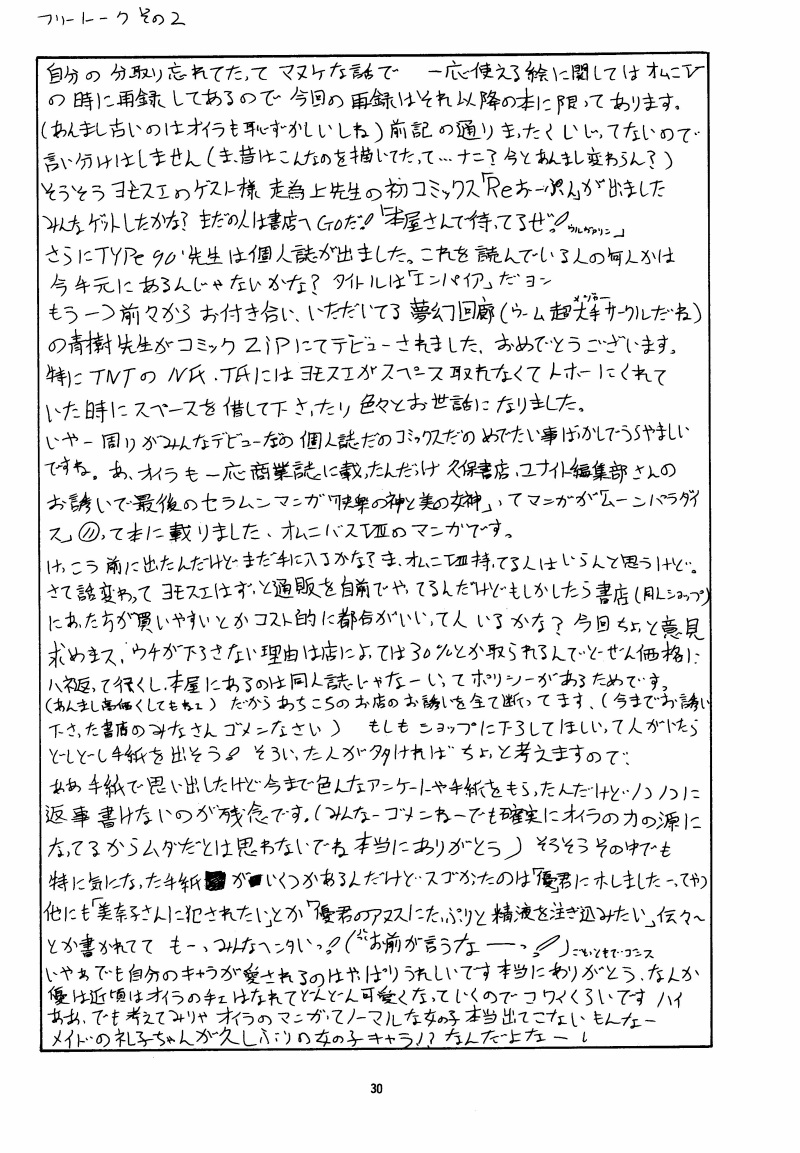 フリートーク その2
自分の分取り忘れてたってマヌケな話で 一応使える絵に関してはオムニⅣ
の時に再録してあるので今回の再録はそれ以降の本に限ってあります。
(あんまし古いのはオイラも恥ずかしいしね)前記の通りまったくいじってないので
言い分けはしません(ま、昔はこんなのを描いてたって…ナニ?今とあんまし変わらん?)
そうそうヨモスエのゲスト様 走為上先生の初コミックス「Reおーぷん」が出ました
みんなゲットしたかな?まだの人は書店へGoだ!「本屋さんで待ってるぜっ!ウルヴァリン」
さらにTYPe90'先生は個人誌が出ました。これを読んでいる人の何人かは
今手元にあるんじゃないかな?タイトルは「エンパイア」だヨン
もう一つ前々からお付き合い、いただいてる夢幻回廊(ウーム超大手メジャーサークルだね)
の青樹先生がコミックZiPにてデビューされました、おめでとうございます。
特にTNTのNFにはヨモスエがスペース取れなくてトホーにくれて
いた時にスペースを借して下さったり色々とお世話になりました。
いやー周りがみんなデビューだの個人誌だのコミックスだのめでたい事ばかしでうらやましい
ですね。あ、オイラも一応商業誌に載ったんだっけ久保書店、ユナイト編集部さんの
お誘いで最後のセラムンマンガ「快楽の神と美の女神」ってマンガが「ムーンパラダイ
ス」⑪って本に載りました、オムニバスⅦのマンガです。
けっこう前に出たんだけどまだ手に入るかな?ま、オムニⅦ持ってる人はいらんと思うけど。
さて話変わってヨモスエはずっと通販を自前でやってるんだけどもしかしたら書店(同人ショップ)
にあった方が買いやすいとかコスト的に都合がいいって人いるかな?今回ちょっと意見
求めまス、ウチが下ろさない理由は店によっては30%とか取られるんでどーせん価格に
ハネ返って行くし、本屋にあるのは同人誌じゃなーいってポリシーがあるためです。
(あんまし高価くしてもねェ)だからあちこちのお店のお誘いを全て断ってます、(今までお誘い
下さった書店のみなさんゴメンなさい)もしもショップに下ろしてほしいって人がいたら
どーしどーし手紙を出そう!そういった人が多ければちょっと考えますので、
ああ手紙で思い出したけど今まで色んなアンケートや手紙をもらったんだけどいつに
返事書けないのが残念です。(みんなーゴメンねーでも確実にオイラの力の源に
なってるからムダだとは思わないでね本当にありがとう)そうそうその中でも
特に気になった手紙がいくつかあるんだけどスゴかったのは「優君にホレしましたーってやつ
他にも「美奈子さんに犯されたい」とか「優君のアヌスにたっぷりと精液を注ぎ込みたい」伝々〜
とか書かれてて もーっみんなヘンタいっ!(お前が言うなーーっ!)
いやぁでも自分のキャラが愛されるのはやっぱりうれしいです本当にありがとう、なんか
優は近頃はオイラの手はなれてどんどん可愛くなっていくのでコワイくらいです ハイ
ああ、でも考えてみりゃオイラのマンガってノーマルな女の子本当出てこないもんなー
メイドの礼子ちゃんが久しぶりの女の子キャラ!?なんだよなー
30